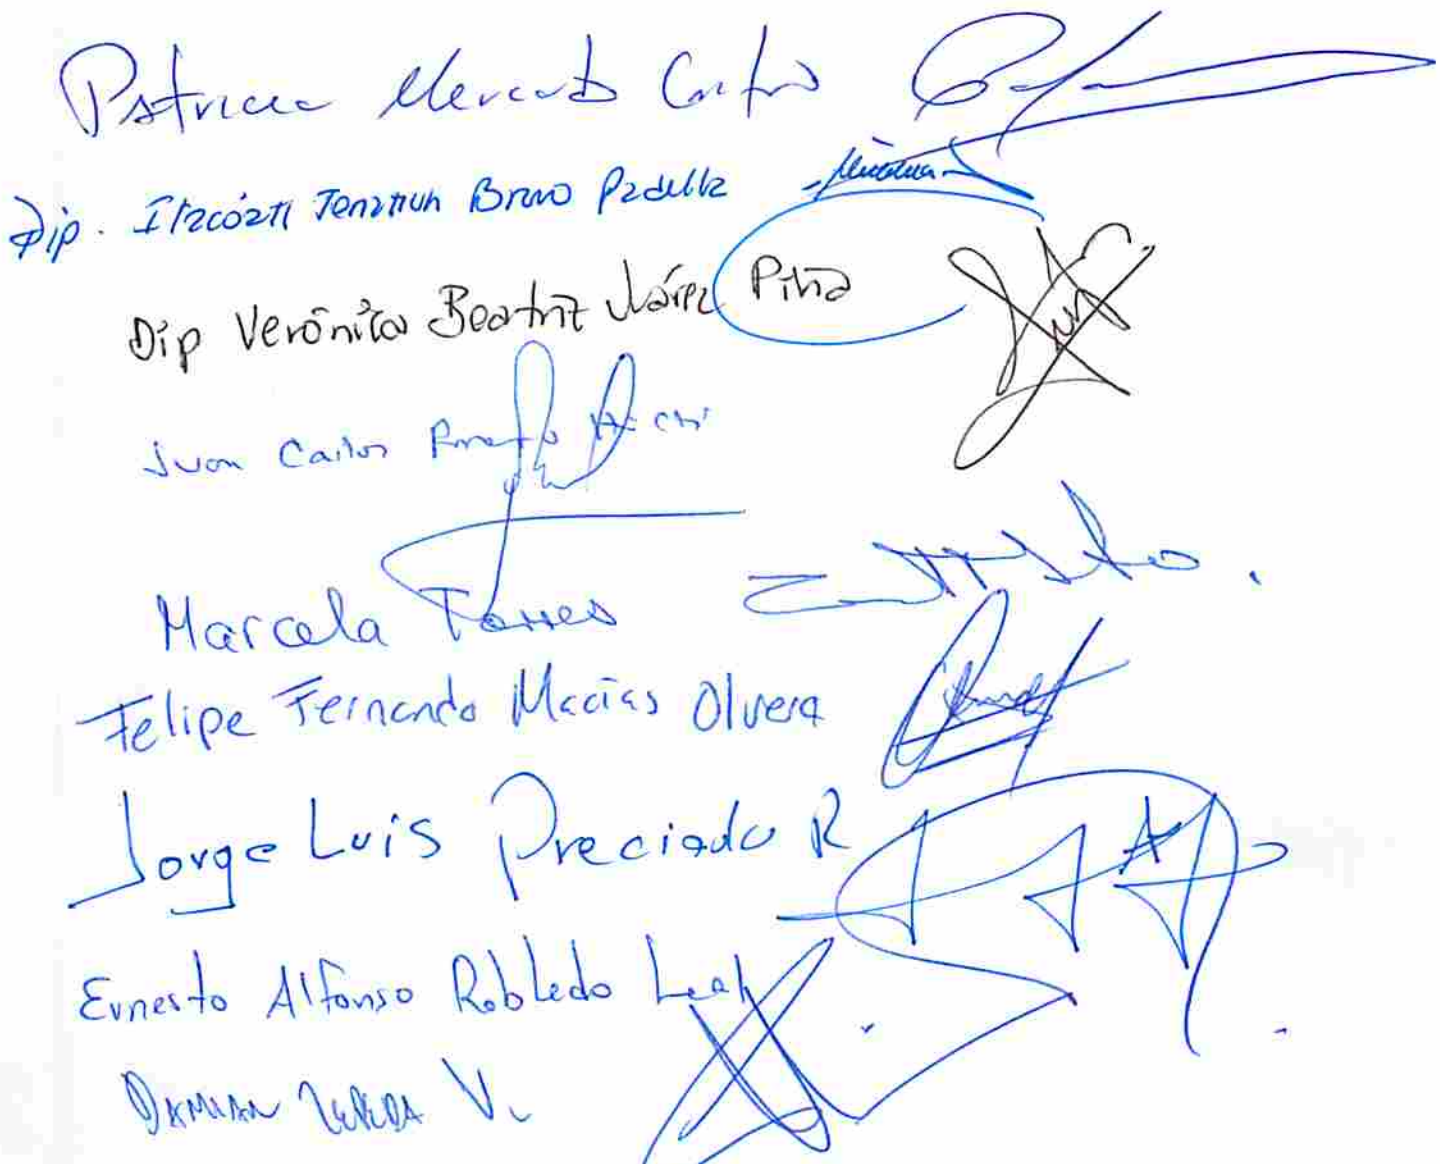 Patricia Mercado Castro
Dip. Itzcóatl Tonatiuh Bravo Padilla
Dip Verónica Beatriz Juárez Piña
Juan Carlos Romero Hicks
Marcela Torres
Felipe Fernando Macías Olvera
Jorge Luis Preciado R
Ernesto Alfonso Robledo Leal
DAMIAN ZEPEDA V.